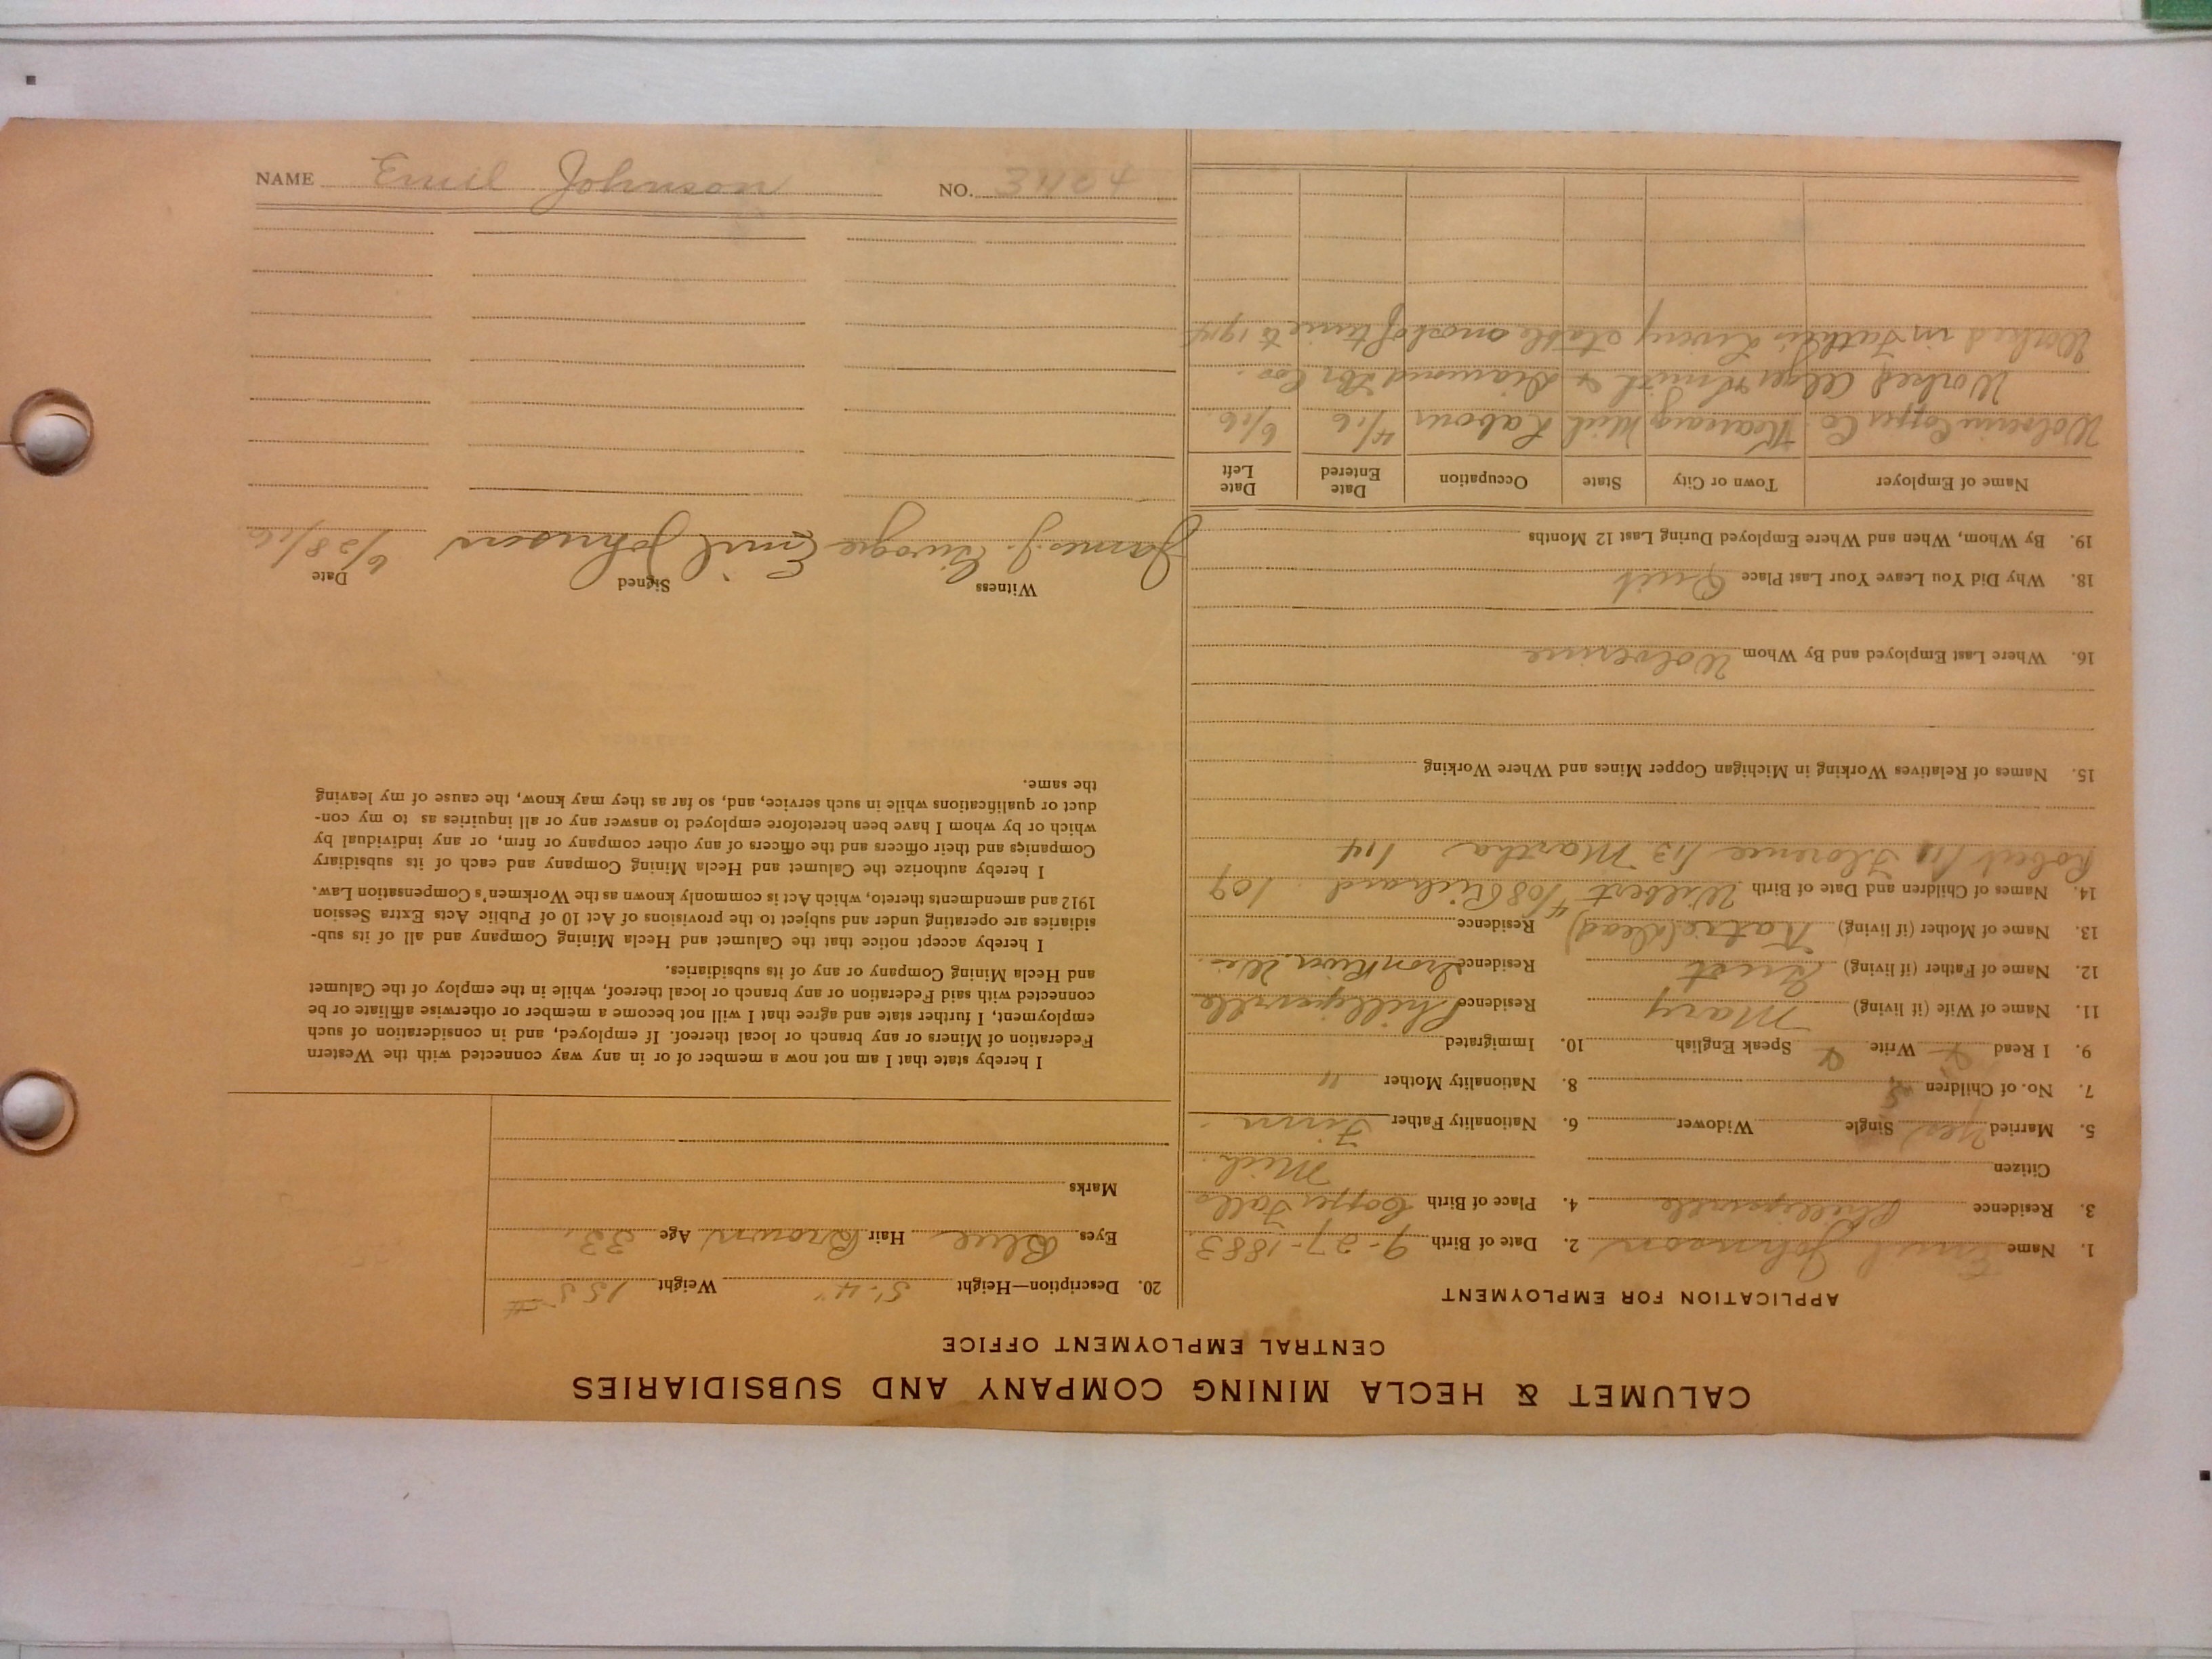 CALUMET & HECLA MINING COMPANY AND SUBSIDIARIES
CENTRAL EMPLOYMENT OFFICE
APPLICATION FOR EMPLOYMENT
1. Name Emil Johnson 2. Date of Birth 9-27-1883
3. Residence Phillipsville 4. Place of Birth Copper Falls
Citizen Mich.
5. Married Yes Single Widower 6. Nationality Father Finn.
7. No. of Children 5 8. Nationality Mother "
9. I Read Write Speak English 10. Immigrated
11. Name of Wife (if living) Mary Residence Phillipsville
12. Name of Father (if living) Residence Iron River Wis.
13. Name of Mother (if living) (dead) Residence
14. Names of Children and Date of Birth Wilbert 4/08 Richard /09
Robert /11 Florence /13 Martha /14
15. Names of Relatives Working in Michigan Copper Mines and Where Working
16. Where Last Employed and By Whom Wolverine
18. Why Did You Leave Your Last Place Quit
19. By Whom, When and Where Employed During Last 12 Months
Name of Employer Town or City State Occupation Date Entered Date Left
Wolverine Copper Co. Kearsarge Mich Labour 4/16 6/16
Worked Alger Smith & Diamond Co.
Worked in Father's Livery stable most of time to 1914
20. Description—Height 5'-4" Weight 155#
Eyes Blue Hair Brown Age 33
Marks
I hereby state that I am not now a member of or in any way connected with the Western
Federation of Miners or any branch or local thereof. If employed, and in consideration of such
employment, I further state and agree that I will not become a member or otherwise affiliate or be
connected with said Federation or any branch or local thereof, while in the employ of the Calumet
and Hecla Mining Company or any of its subsidiaries.
I hereby accept notice that the Calumet and Hecla Mining Company and all of its sub-
sidiaries are operating under and subject to the provisions of Act 10 of Public Acts Extra Session
1912 and amendments thereto, which Act is commonly known as the Workmen's Compensation Law.
I hereby authorize the Calumet and Hecla Mining Company and each of its subsidiary
Companies and their officers and the officers of any other company or firm, or any individual by
which or by whom I have been heretofore employed to answer any or all inquiries as to my con-
duct or qualifications while in such service, and, so far as they may know, the cause of my leaving
the same.
Witness Signed Date
James J. Emil Johnson 6/28/16
NAME Emil Johnson NO. 34124